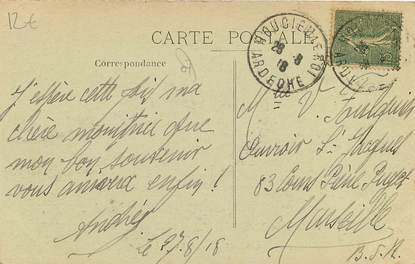 12€
CARTE POSTALE
Correspondance
J'espère cette fois ma
chère que
mon bon souvenir
vous arrivera enfin !
Andrée
Le 27/8/18
28 - 8
18
ARDECHE
M. V.
Ouvroir St Jacques
83 Cours Pierre Puget
Marseille
B.d.R.